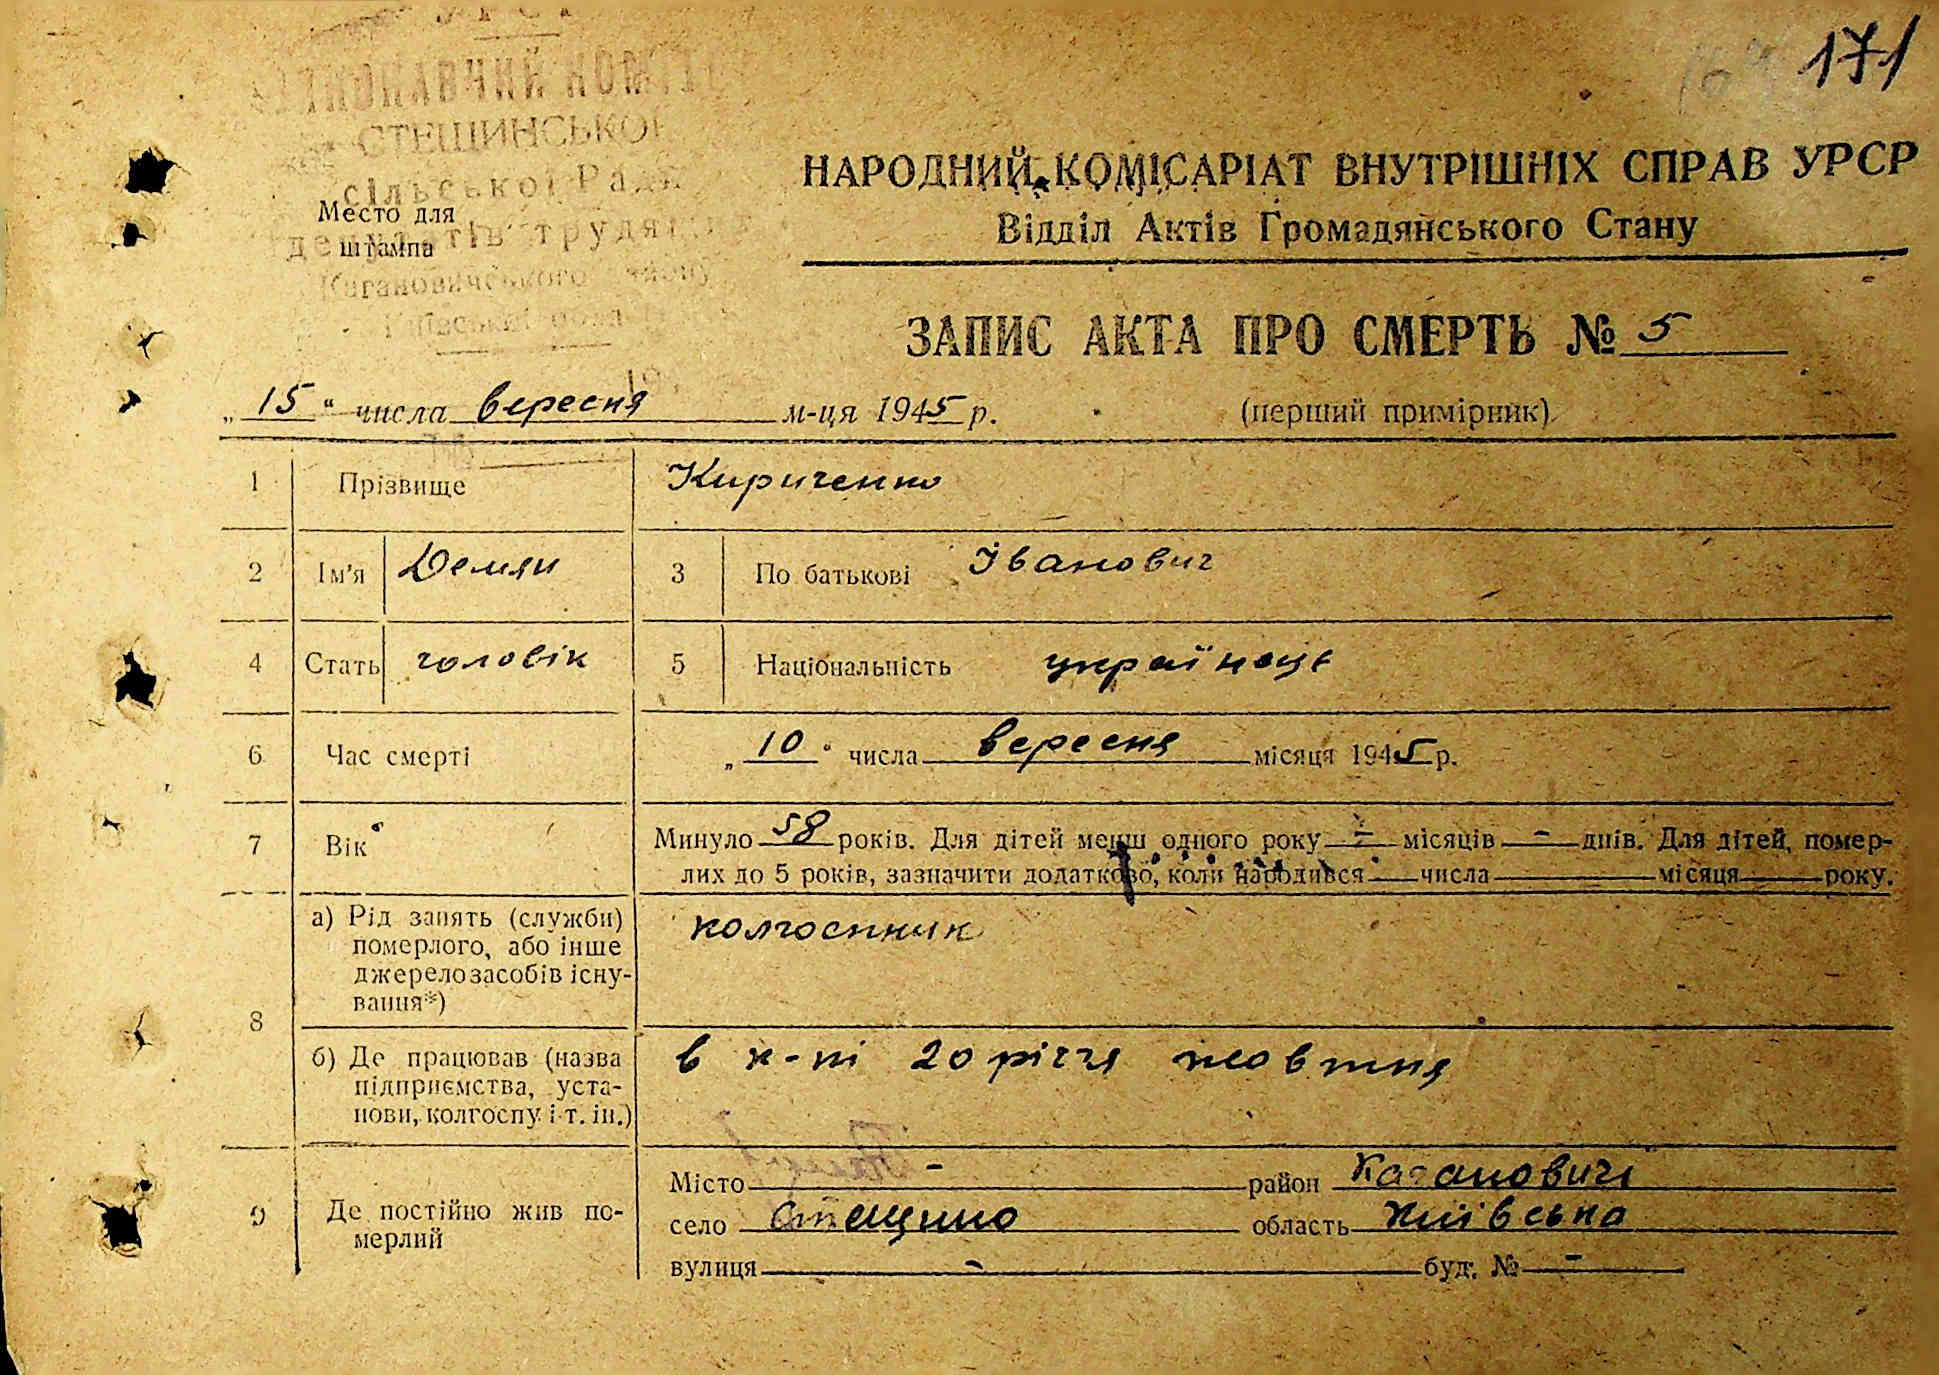 171
ВИКОНАВЧИЙ КОМІТЕТ
СТЕЩИНСЬКОЇ
сільської Ради
Место для
депутатів трудящ
штампа
Кагановичського району
Київської області
НАРОДНИЙ КОМІСАРІАТ ВНУТРІШНІХ СПРАВ УРСР
Відділ Актів Громадянського Стану
ЗАПИС АКТА ПРО СМЕРТЬ № 5
„ 15 “ числа вересня м-ця 1945 р.
(перший примірник)
1 Прізвище Кириченко
2 Ім'я Демян 3 По батькові Іванович
4 Стать чоловік 5 Національність українець
6 Час смерті „ 10 “ числа вересня місяця 1945 р.
7 Вік Минуло 58 років. Для дітей менш одного року - місяців - днів. Для дітей, помер-
лих до 5 років, зазначити додатково, коли народився числа місяця року.
8 а) Рід занять (служби) померлого, або інше джерело засобів існу-
вання*) колгоспник
б) Де працював (назва підприємства, уста-
нови, колгоспу і т. ін.) в к-пі 20 річчя жовтня
9 Де постійно жив по-
мерлий
Місто - район Кагановичі
село Стещино область Київська
вулиця - буд. № -